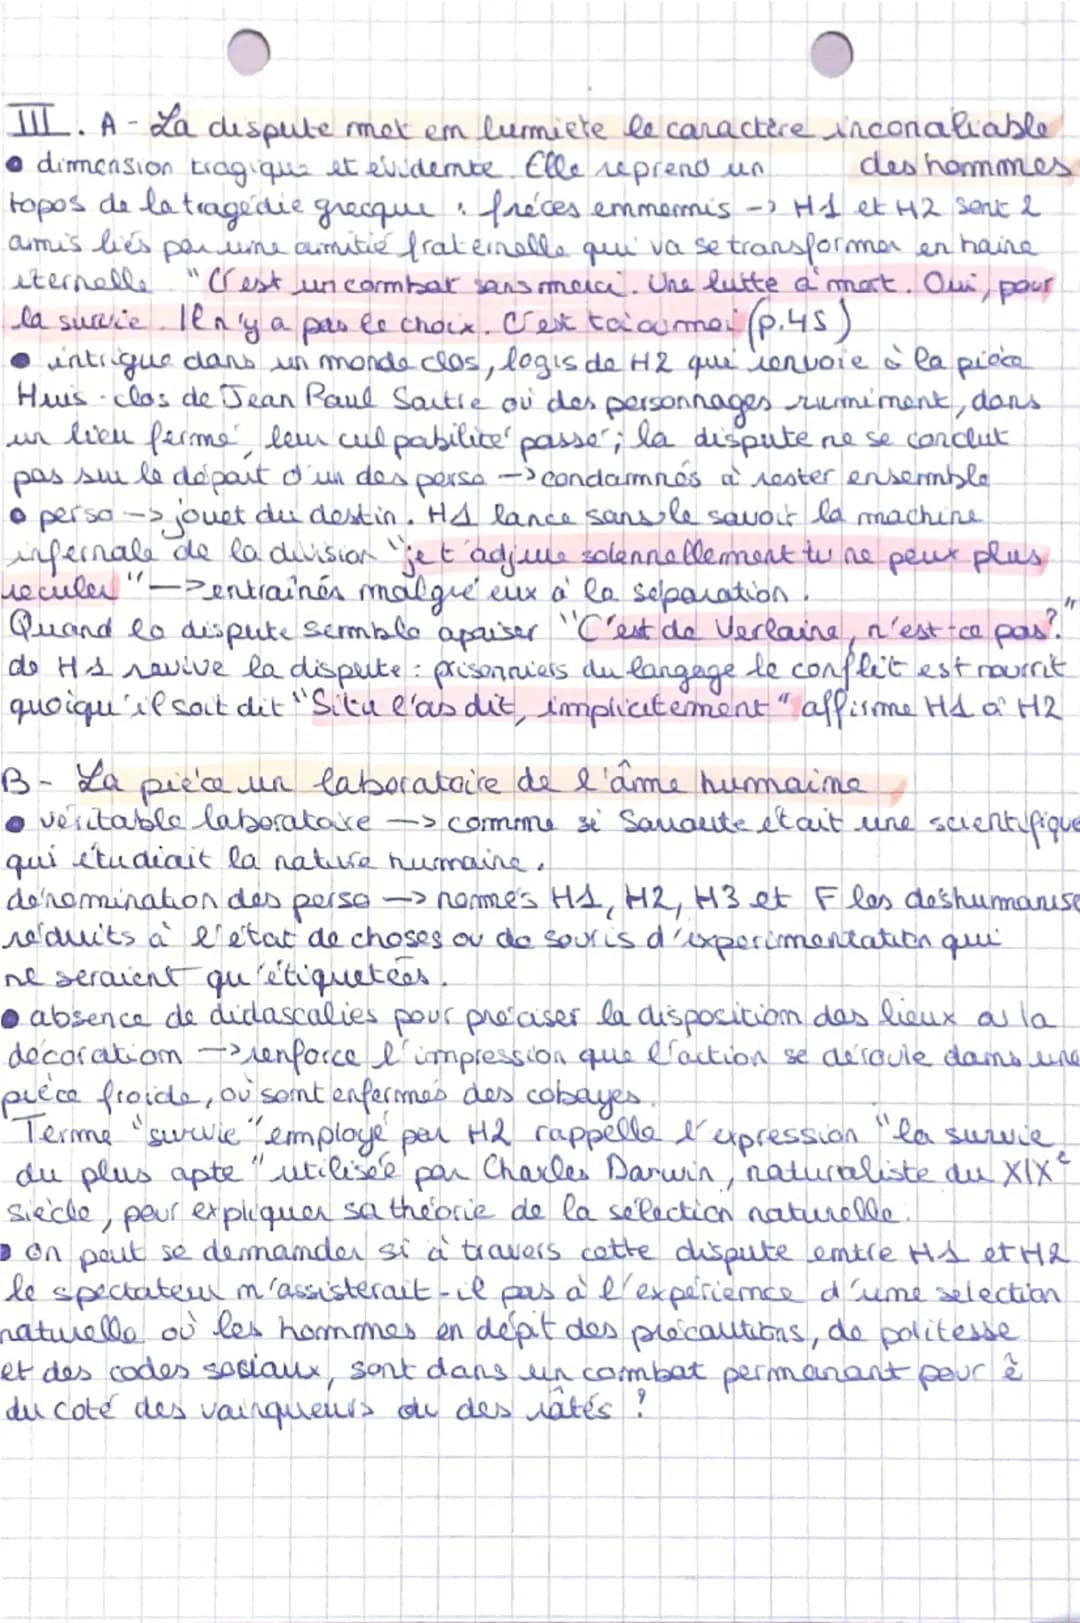 III. A - La dispute met em lumiète le caractère inconciliable
des hommes
• dimension tragique et évidemte. Elle reprend un
topos de la tragédie grecque : fréces emmemis -> H1 et H2 sont 2
amis liés par une amitié fraternelle qui va se transformer en haine
éternelle "C'est un combat sans merci. Une lutte à mort. Oui, pour
la survie. Il n'y a pas le choix. C'est toi ou moi (p.45)
• intrigue dans un monde clos, logis de H2 qui renvoie à la pièce
Huis-clos de Jean Paul Sartre où des personnages ruminent, dans
un lieu fermé, leur culpabilité passé ; la dispute ne se conclut
pas sur le départ d'un des perso -> condamnés à rester ensemble
• perso -> jouet du destin. H1 lance sans le savoir la machine
infernale de la division "je t'adjure solennellement tu ne peux plus
reculer" -> entraînés malgré eux à la séparation.
Quand la dispute semble apaiser "C'est de Verlaine, n'est-ce pas?"
de H1 ravive la dispute : prisonniers du langage le conflit est nourrit
quoiqu'il soit dit "Si tu l'as dit, implicitement" affirme H1 à H2
B - La pièce un laboratoire de l'âme humaine
• véritable laboratoire -> comme si Sarraute était une scientifique
qui étudiait la nature humaine.
dénomination des perso -> nommés H1, H2, H3 et F les déshumanise
réduits à l'état de choses ou de souris d'expérimentation qui
ne seraient qu'étiquetées.
• absence de didascalies pour préciser la disposition des lieux ou la
décoration -> renforce l'impression que l'action se déroule dans une
pièce froide, où sont enfermés des cobayes.
Terme "survie" employé par H2 rappelle l'expression "la survie
du plus apte" utilisée par Charles Darwin, naturaliste du XIXe
siècle, pour expliquer sa théorie de la sélection naturelle.
• on peut se demander si à travers cette dispute entre H1 et H2
le spectateur n'assisterait-il pas à l'expérience d'une sélection
naturelle où les hommes en dépit des précautions, de politesse
et des codes sociaux, sont dans un combat permanant pour ê
du coté des vainqueurs ou des ratés ?